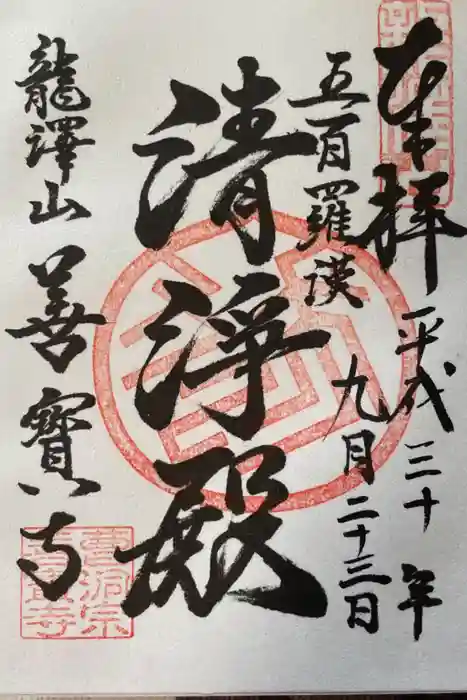 奉拝
平成三十年
九月二十三日
五百羅漢
清浄殿
龍澤山善寳寺
曹洞宗
善寳寺